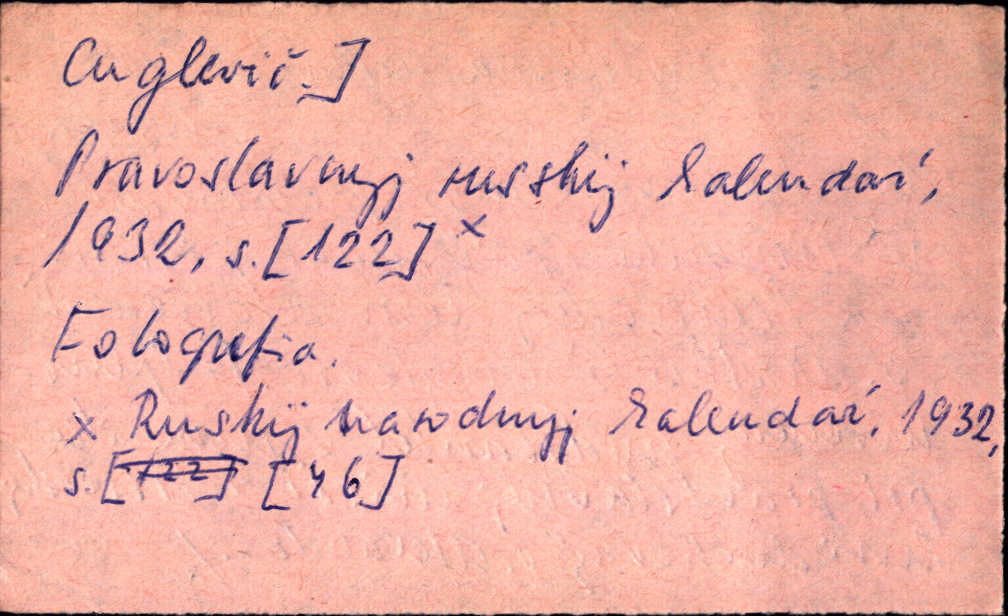 Cuglevič.]
Pravoslavnyj russkij kalendaŕ,
1932, s.[122] x
Fotografia.
x Ruskij narodnyj kalendaŕ, 1932,
s. [122] [46]